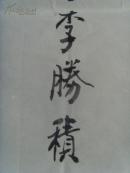 李勝積